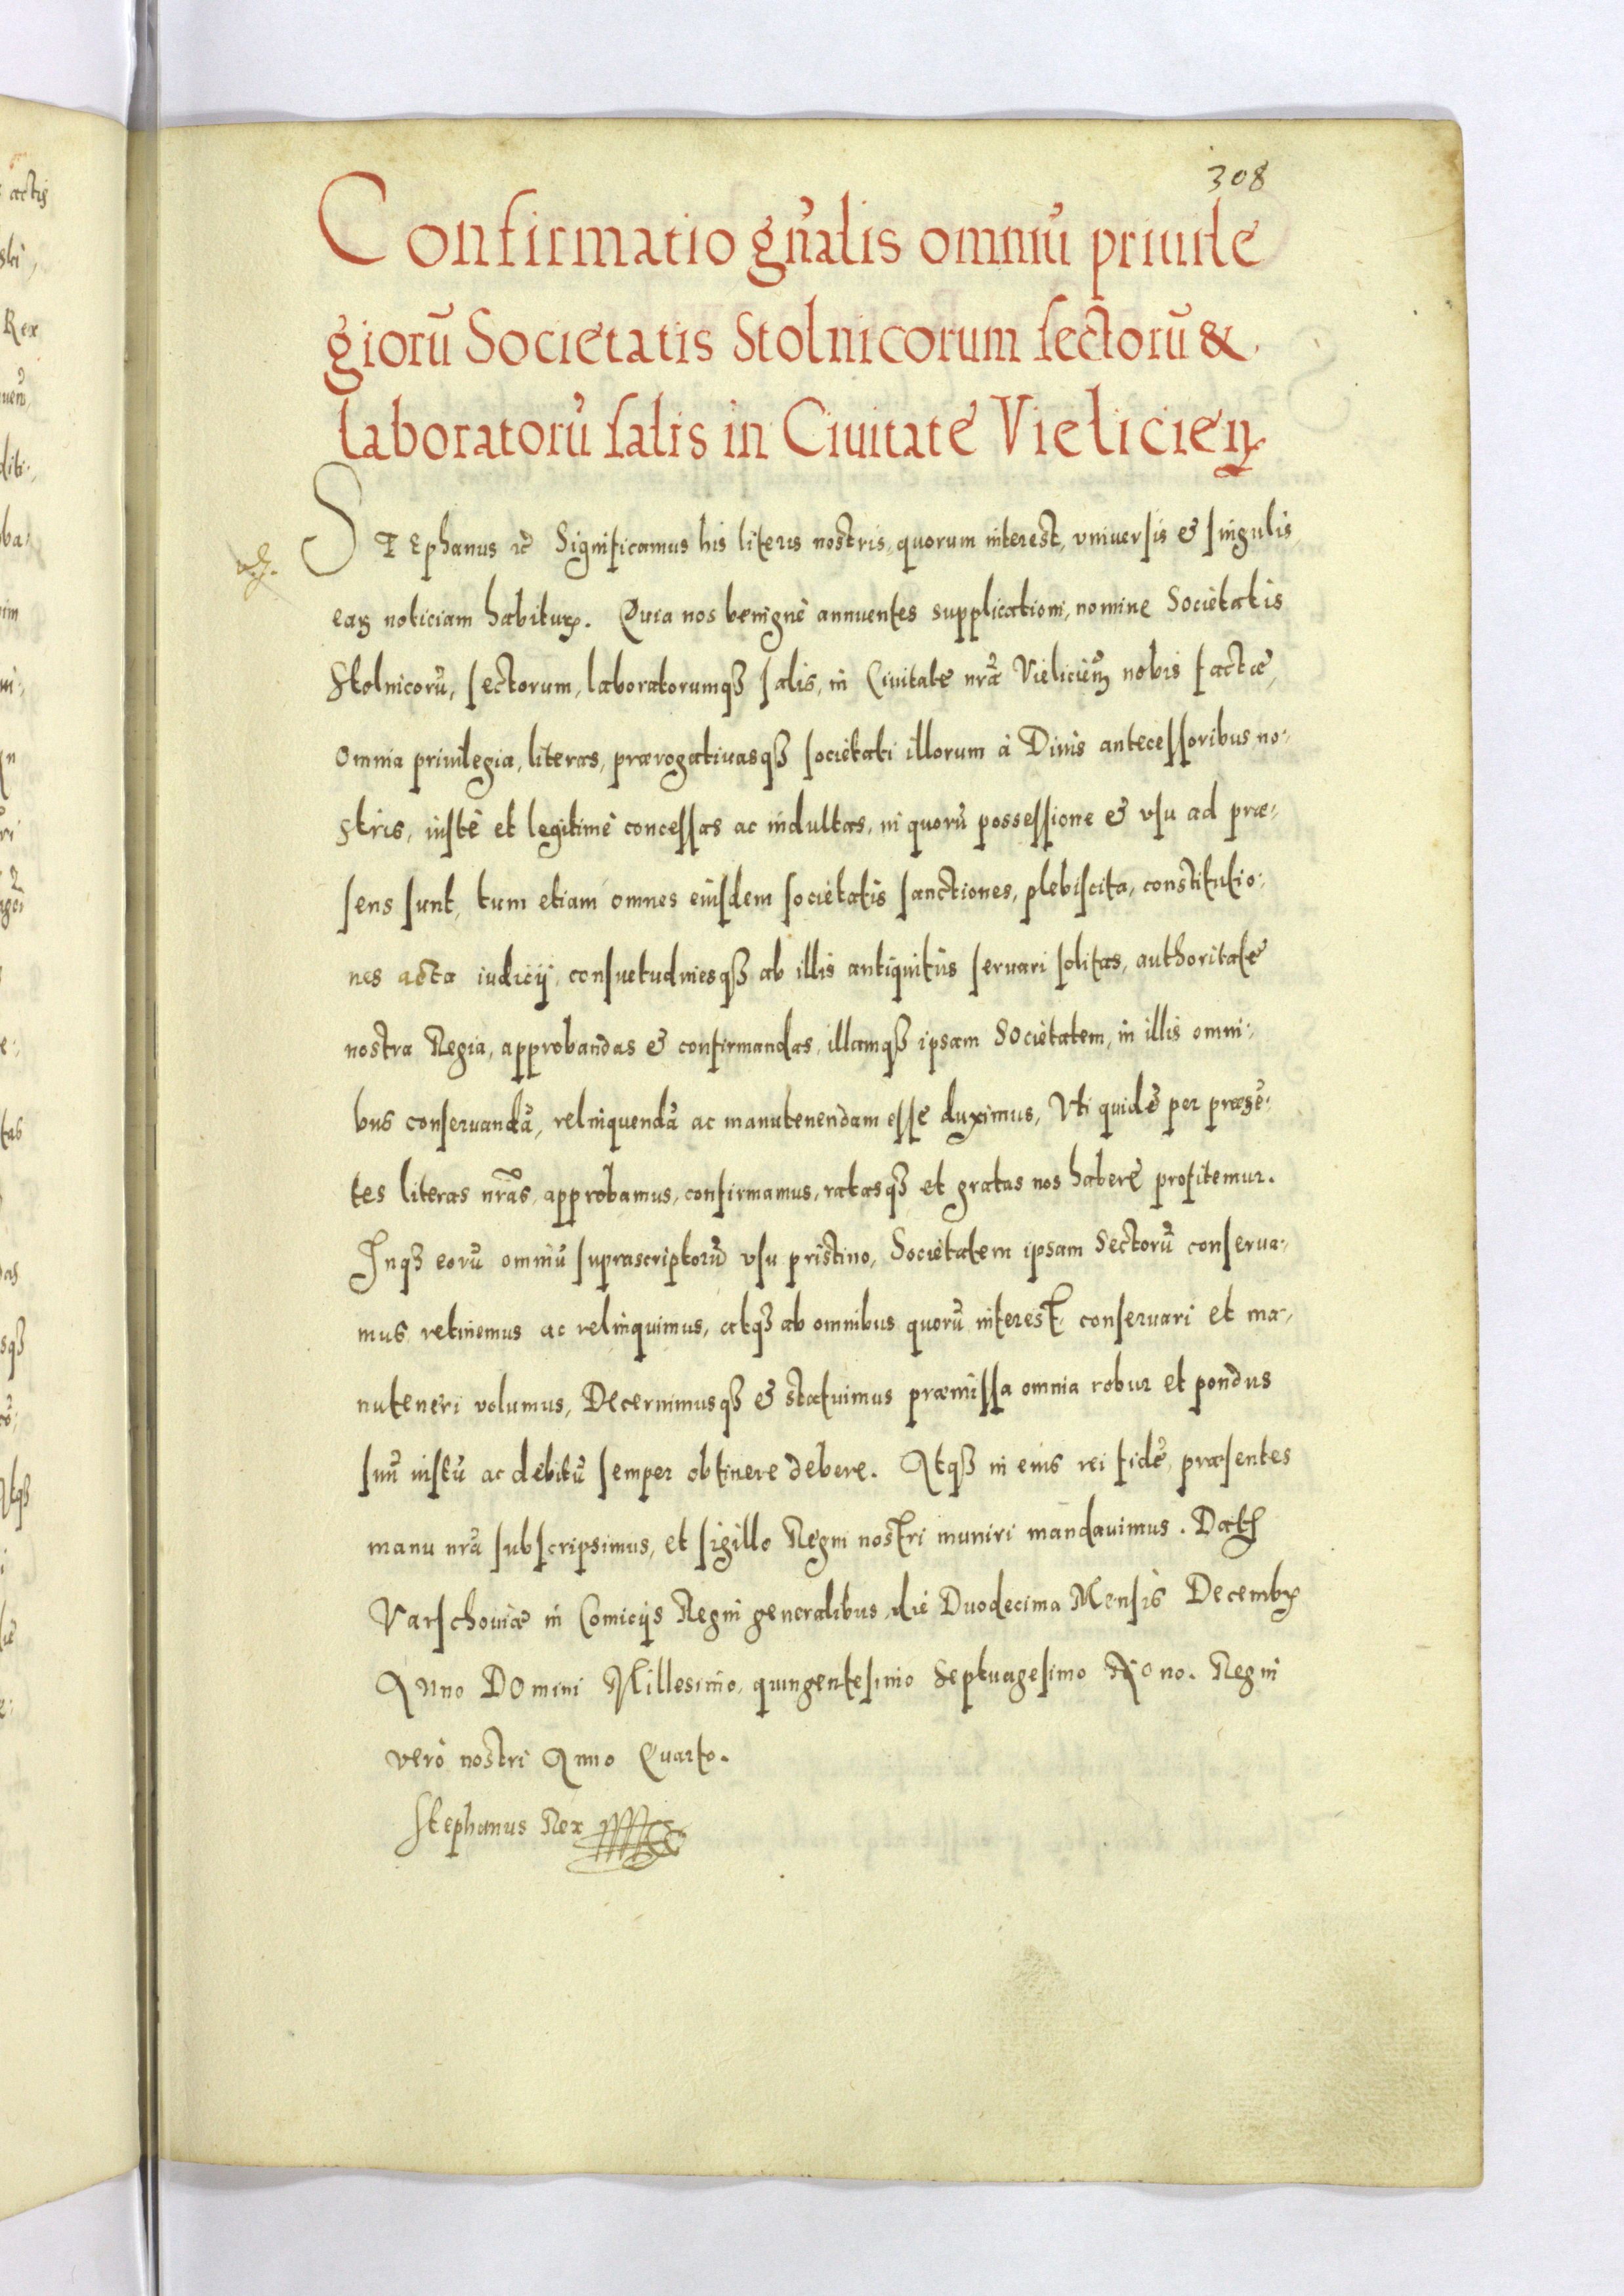 308
Confirmatio gn̄alis omniū priuile
giorū Societatis Stolnicorum sectorū &
laboratorū salis in Ciuitate Vielicien̄
STEphanus ꝛc̄ Significamus his literis nostris, quorum interest, vniuersis & singulis,
earꝫ noticiam habiturꝫ. Quia nos benignè annuentes supplicationi, nomine Societatis
Stolnicorū, sectorum, laboratorumqꝫ salis, in Ciuitate nr̄a Vielicien̄ nobis factæ,
omnia priuilegia, literas, prærogatiuasqꝫ societati illorum à Diuis antecessoribus no:
stris, iustè et legitimè concessas ac indultas, in quorū possessione & vsu ad præ:
sens sunt, tum etiam omnes eiusdem societatis sanctiones, plebiscita, constitutio:
nes acta iudicij, consuetudinesqꝫ ab illis antiquitùs seruari solitas, authoritate
nostra Regia, approbandas & confirmandas, illamqꝫ ipsam Societatem, in illis omni:
bus conseruandā, relinquendā ac manutenendam esse duximus, Vti quidē per præsē:
tes literas nr̄as, approbamus, confirmamus, ratasqꝫ et gratas nos habere profitemur.
Inqꝫ eorū omniū suprascriptorū vsu pristino, Societatem ipsam Sectorū conserua:
mus, retinemus ac relinquimus, atqꝫ ab omnibus quorū interest, conseruari et ma:
nuteneri volumus, Decernimusqꝫ & statuimus præmissa omnia robur et pondus
suū iustū ac debitū semper obtinere debere. Atqꝫ in eius rei fidē, præsentes
manu nr̄a subscripsimus, et sigillo Regni nostri muniri mandauimus. Datꝫ
Varschouiæ in Comicijs Regni generalibus, die Duodecima Mensis Decembꝫ
Anno Domini Millesimo, quingentesimo Septuagesimo Nono. Regni
verò nostri Anno Quarto.
Stephanus Rex